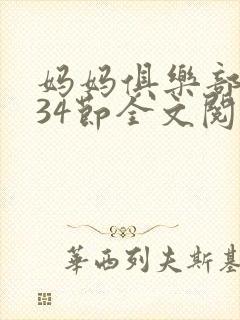 妈妈俱樂部
34節全文閱
華西列夫斯基